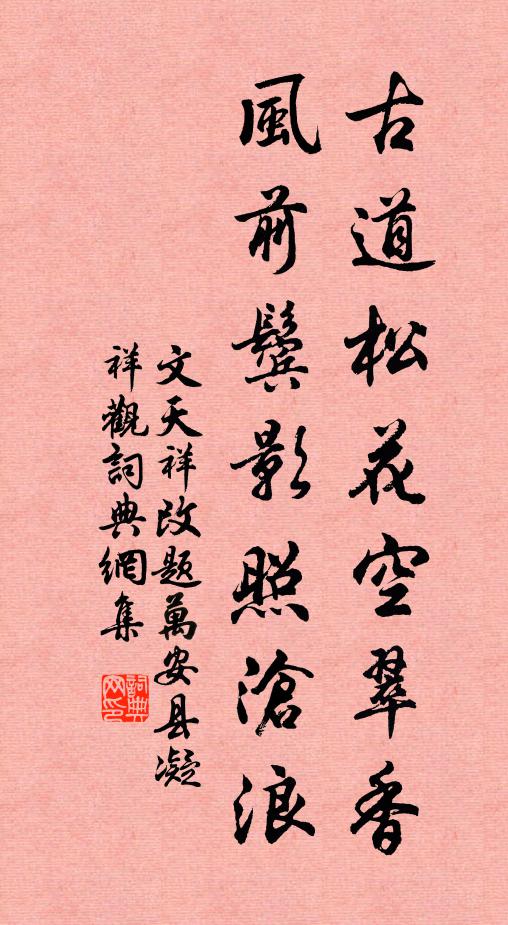 古道松花空翠香
風前鬓影照滄浪
文天祥改题萬安县凝
祥觀詞典網集
詞典
网印